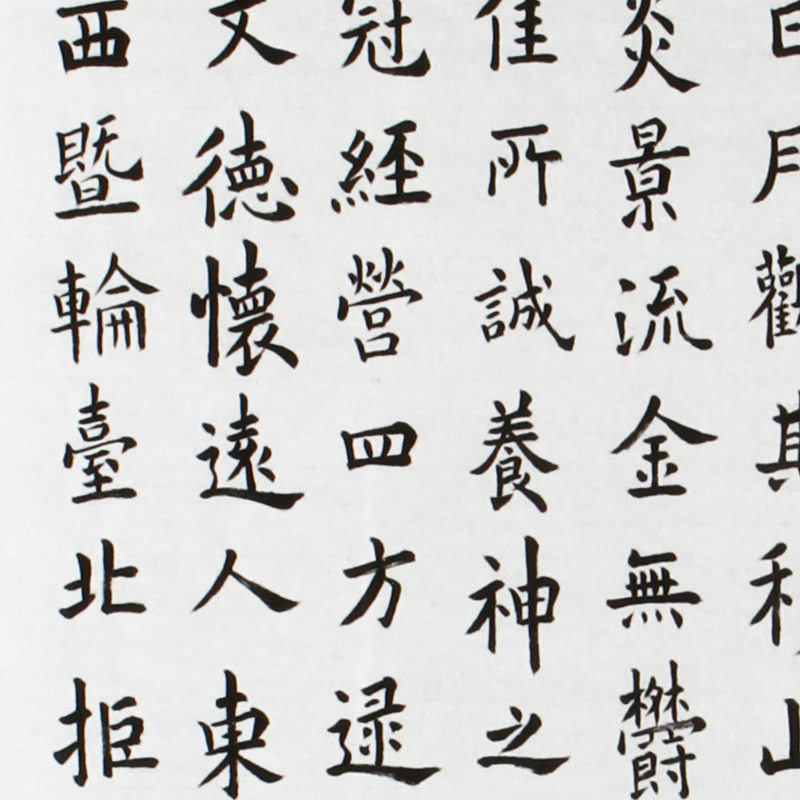 日月觀其移山
炎景流金無鬱
佳所誠養神之
冠經營四方逮
文德懷遠人東
西暨輪臺北拒